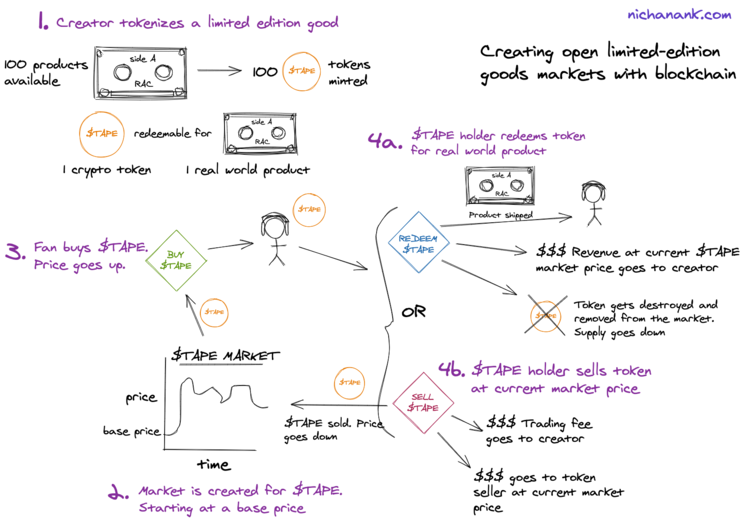 nichanank.com
Creating open limited-edition
goods markets with blockchain
1. Creator tokenizes a limited edition good
100 products
available
side A
RAC
100 $TAPE tokens
minted
$TAPE redeemable for
side A
RAC
1 crypto token
1 real world product
2. Market is created for $TAPE.
Starting at a base price
$TAPE MARKET
price
base price
time
$TAPE
3. Fan buys $TAPE.
Price goes up.
BUY
$TAPE
$TAPE
OR
4a. $TAPE holder redeems token
for real world product
REDEEM
$TAPE
side A
RAC
Product shipped
$$$ Revenue at current $TAPE
market price goes to creator
$TAPE
Token gets destroyed and
removed from the market.
Supply goes down
4b. $TAPE holder sells token
at current market price
SELL
$TAPE
$TAPE
$TAPE sold. Price
goes down
$$$ Trading fee
goes to creator
$$$ goes to token
seller at current market
price